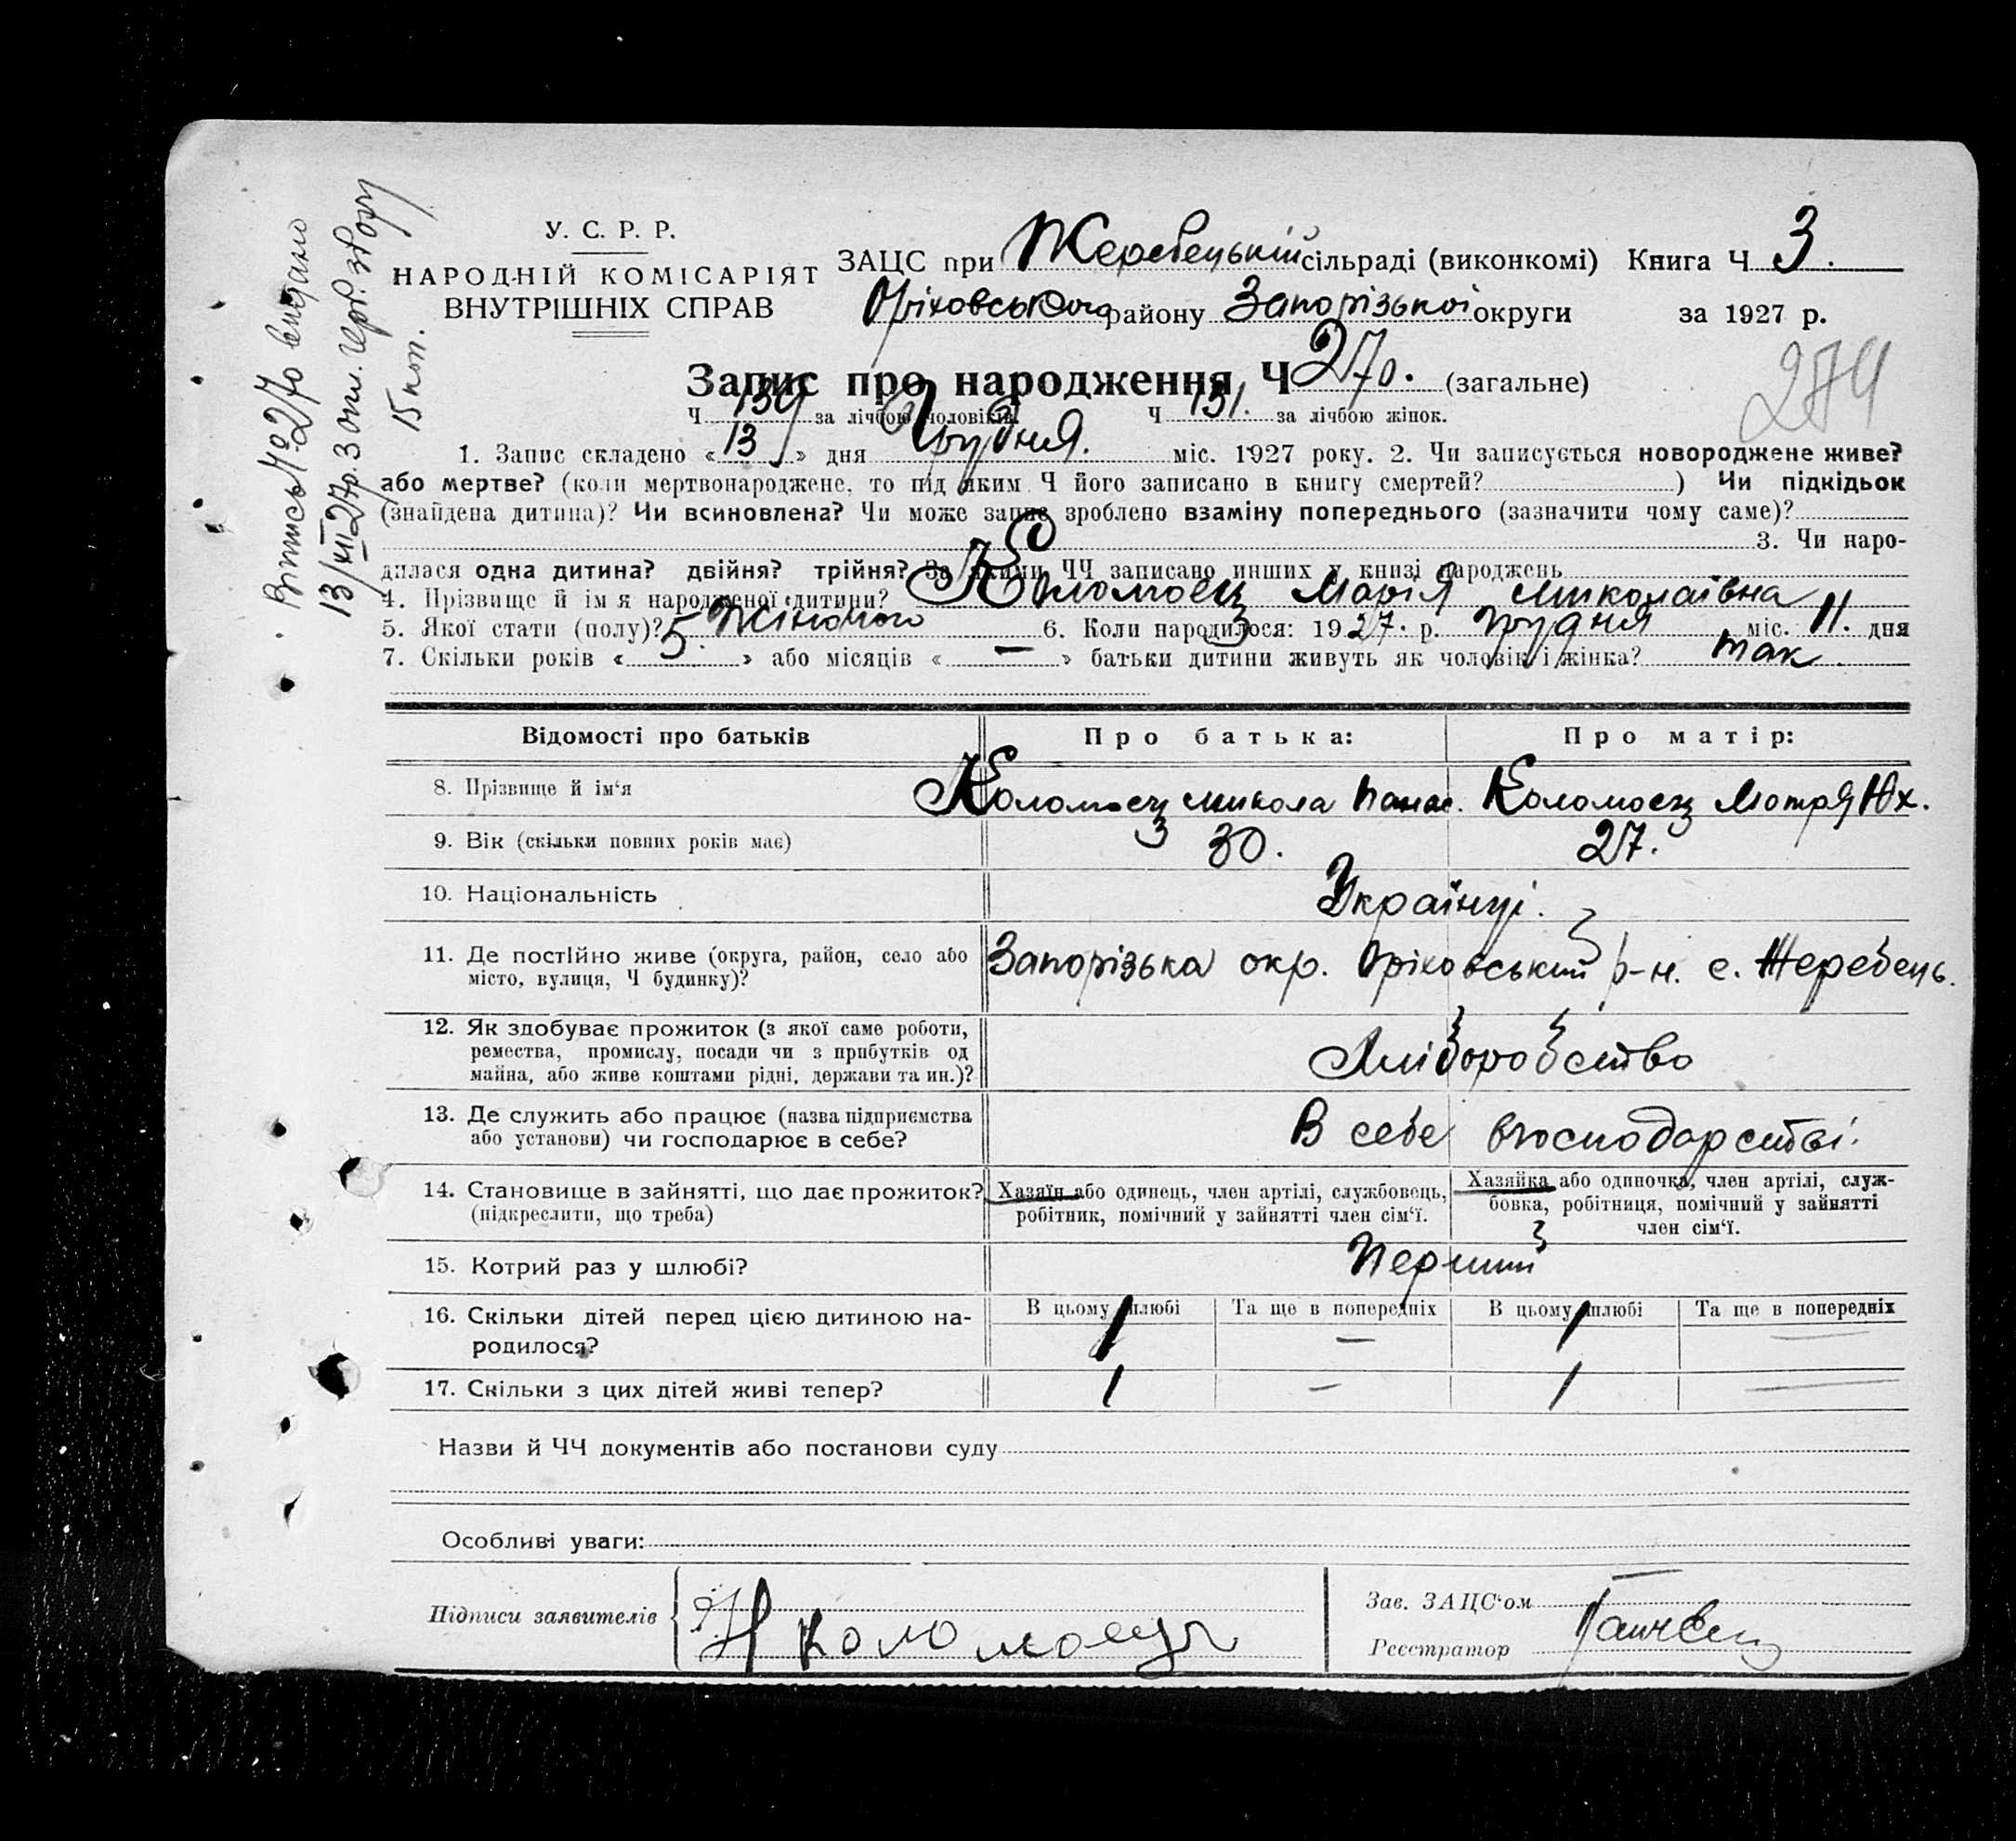 Випись № 270 видано
13/XII 27 р. З опл. герб. збору
15 коп.
У. С. Р. Р.
НАРОДНІЙ КОМІСАРІЯТ
ВНУТРІШНІХ СПРАВ
ЗАЦС при Жеребецькій сільраді (виконкомі) Книга Ч 3.
Оріховського району Запорізької округи за 1927 р.
Запис про народження Ч 270. (загальне)
274
Ч 139 за лічбою чоловіків. Ч 131. за лічбою жінок.
1. Запис складено « 13 » дня Грудня. міс. 1927 року. 2. Чи записується новороджене живе?
або мертве? (коли мертвонароджене, то під яким Ч його записано в книгу смертей? ) Чи підкідьок
(знайдена дитина)? Чи всиновлена? Чи може запис зроблено взаміну попереднього (зазначити чому саме)?
3. Чи наро-
дилася одна дитина? двійня? трійня? За якими ЧЧ записано инших у книзі народжень
4. Прізвище й ім'я народженої дитини? Коломоец Марія Миколаївна
5. Якої стати (полу)? Жіночого 6. Коли народилося: 1927. р. грудня міс. 11. дня
7. Скільки років « 5. » або місяців « — » батьки дитини живуть як чоловік і жінка? так.
Відомості про батьків Про батька: Про матір:
8. Прізвище й ім'я Коломоец Микола Панас. Коломоец Мотря Юх.
9. Вік (скільки повних років має) 30. 27.
10. Національність Українці.
11. Де постійно живе (округа, район, село або
місто, вулиця, Ч будинку)? Запорізька окр. Оріховський р-н. с. Жеребець.
12. Як здобуває прожиток (з якої саме роботи,
ремества, промислу, посади чи з прибутків од
майна, або живе коштами рідні, держави та ин.)? Хліборобство
13. Де служить або працює (назва підприємства
або установи) чи господарює в себе? В себе вгосподарстві.
14. Становище в зайнятті, що дає прожиток?
(підкреслити, що треба)
Хазяїн або одинець, член артілі, службовець,
робітник, помічний у зайнятті член сім'ї.
Хазяйка або одиночка, член артілі, служ-
бовка, робітниця, помічний у зайнятті
член сім'ї.
15. Котрий раз у шлюбі? Перший
16. Скільки дітей перед цією дитиною на-
родилося?
В цьому шлюбі Та ще в попередніх В цьому шлюбі Та ще в попередніх
1 — 1 —
17. Скільки з цих дітей живі тепер? 1 — 1 —
Назви й ЧЧ документів або постанови суду
Особливі уваги:
Підписи заявителів Н Коломоець
Зав. ЗАЦС'ом
Реєстратор